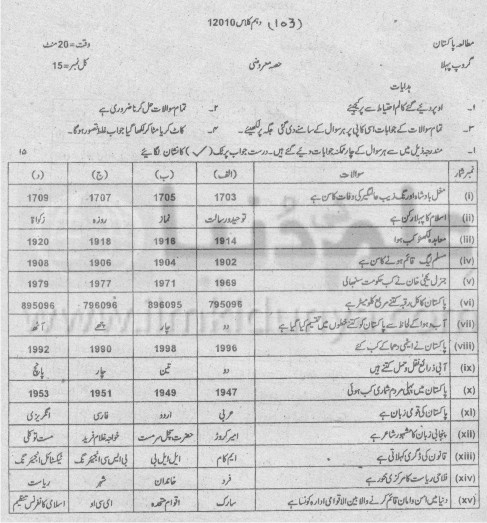 (103) دہم کلاس 12010
مطالعہ پاکستان وقت=20 منٹ
گروپ پہلا حصہ معروضی کل نمبر=15
ہدایات
۱۔ اوپر دیئے گئے کالم احتیاط سے پر کیجئے ۲۔ تمام سوالات حل کرنا ضروری ہے
۳۔ تمام سوالات کے جوابات اسی کاپی پر ہر سوال کے سامنے دی گئی جگہ پر لکھیئے۔ ۴۔ کاٹ کر یا مٹا کر لکھا گیا جواب غلط تصور ہوگا۔
۱۔ مندرجہ ذیل میں سے ہر سوال کے چار ممکنہ جوابات دیئے گئے ہیں۔ درست جواب پر ٹک (✓) کا نشان لگائیے ۱۵
نمبر شمار سوالات (الف) (ب) (ج) (د)
(i) مغل بادشاہ اورنگ زیب عالمگیر کی وفات کا سن ہے 1703 1705 1707 1709
(ii) اسلام کا پہلا رکن ہے توحید و رسالت نماز روزہ زکواۃ
(iii) معاہدہ لکھنؤ کب ہوا 1914 1916 1918 1920
(iv) مسلم لیگ قائم ہونے کا سن ہے 1902 1904 1906 1908
(v) جنرل یحیٰی خان نے کب حکومت سنبھالی 1969 1971 1977 1979
(vi) پاکستان کا کل رقبہ کتنے مربع کلومیٹر ہے 795096 896095 796096 895096
(vii) آب و ہوا کے لحاظ سے پاکستان کو کتنے خطوں میں تقسیم کیا گیا ہے دو چار چھ آٹھ
(viii) پاکستان نے ایٹمی دھماکے کب کئے 1996 1998 1990 1992
(ix) آبی ذرائع نقل و حمل کتنے ہیں دو تین چار پانچ
(x) پاکستان میں پہلی مردم شماری کب ہوئی 1947 1949 1951 1953
(xi) پاکستان کی قومی زبان ہے عربی اردو فارسی انگریزی
(xii) پنجابی زبان کا مشہور شاعر ہے امیر کروڑ حضرت سچل سرمست خواجہ غلام فرید مست توکلی
(xiii) قانون کی ڈگری کہلاتی ہے ایم کام ایل ایل بی بی ایس سی انجینئرنگ ٹیکسٹائل انجینئرنگ
(xiv) فلاحی ریاست کا مرکزی محور ہے فرد خاندان شہر ریاست
(xv) دنیا میں امن و امان قائم کرنے والا بین الاقوامی ادارہ کونسا ہے سارک اقوام متحدہ ای سی او اسلامی کانفرنس تنظیم